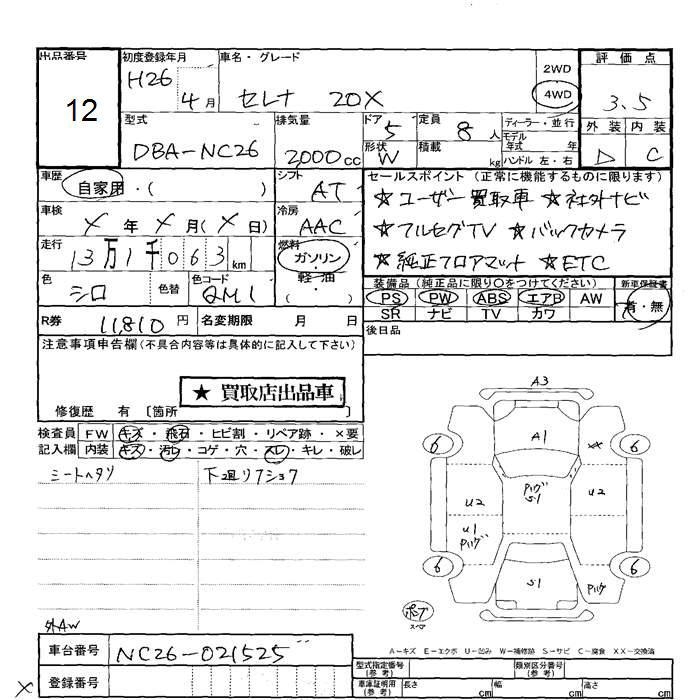 出品番号 初度登録年月 車名・グレード 2WD 評価点
12 H26 4月 セレナ 20X 4WD 3.5
外装 内装
D C
型式 排気量 ドア 定員 ディーラー・並行
DBA-NC26 2000cc 5 8人 モデル年式 年
形状 積載 ハンドル 左・右
W kg
車歴 シフト セールスポイント (正常に機能するものに限ります)
自家用・( ) AT ★ユーザー買取車 ★社外ナビ
車検 冷房 ★フルセグTV ★バックカメラ
X年X月(X日) AAC ★純正フロアマット ★ETC
走行 燃料
13万1千063km ガソリン・軽油
( ・ )
色 色替 色コード 装備品 (純正品に限り○をつけてください) 新車保証書
シロ QM1 PS PW ABS エアB AW 有・無
SR ナビ TV カワ
R券 11,810円 名変期限 月 日 後日品
注意事項申告欄(不具合内容等は具体的に記入して下さい)
★ 買取店出品車
修復歴 有 〔箇所 〕
検査員 FW キズ・飛石・ヒビ割・リペア跡・×要
記入欄 内装 キズ・汚レ・コゲ・穴・スレ・キレ・破レ
シートヘタリ 下廻リフショク
A3
A1
6 XX 6
U2 パハグ S1 U2
U1 パハグ
6 6
S1 パハグ
スペア
外AW
A-キズ E-エクボ U-凹み W-補修跡 S-サビ C-腐食 XX-交換済
車台番号 NC26-021525
型式指定番号(参考) 類別区分番号(参考)
X 登録番号 車庫証明用(参考) 長さ cm 幅 cm 高さ cm